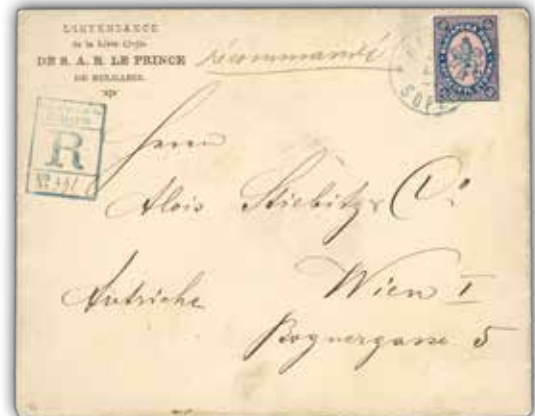 L'INTENDANCE
de la Liste Civile
DE S. A. R. LE PRINCE
DE BULGARIE.
recommandé
R
No
Herrn
Alois Stiebitz & Co
Autriche
Wien I
Bognergasse 5